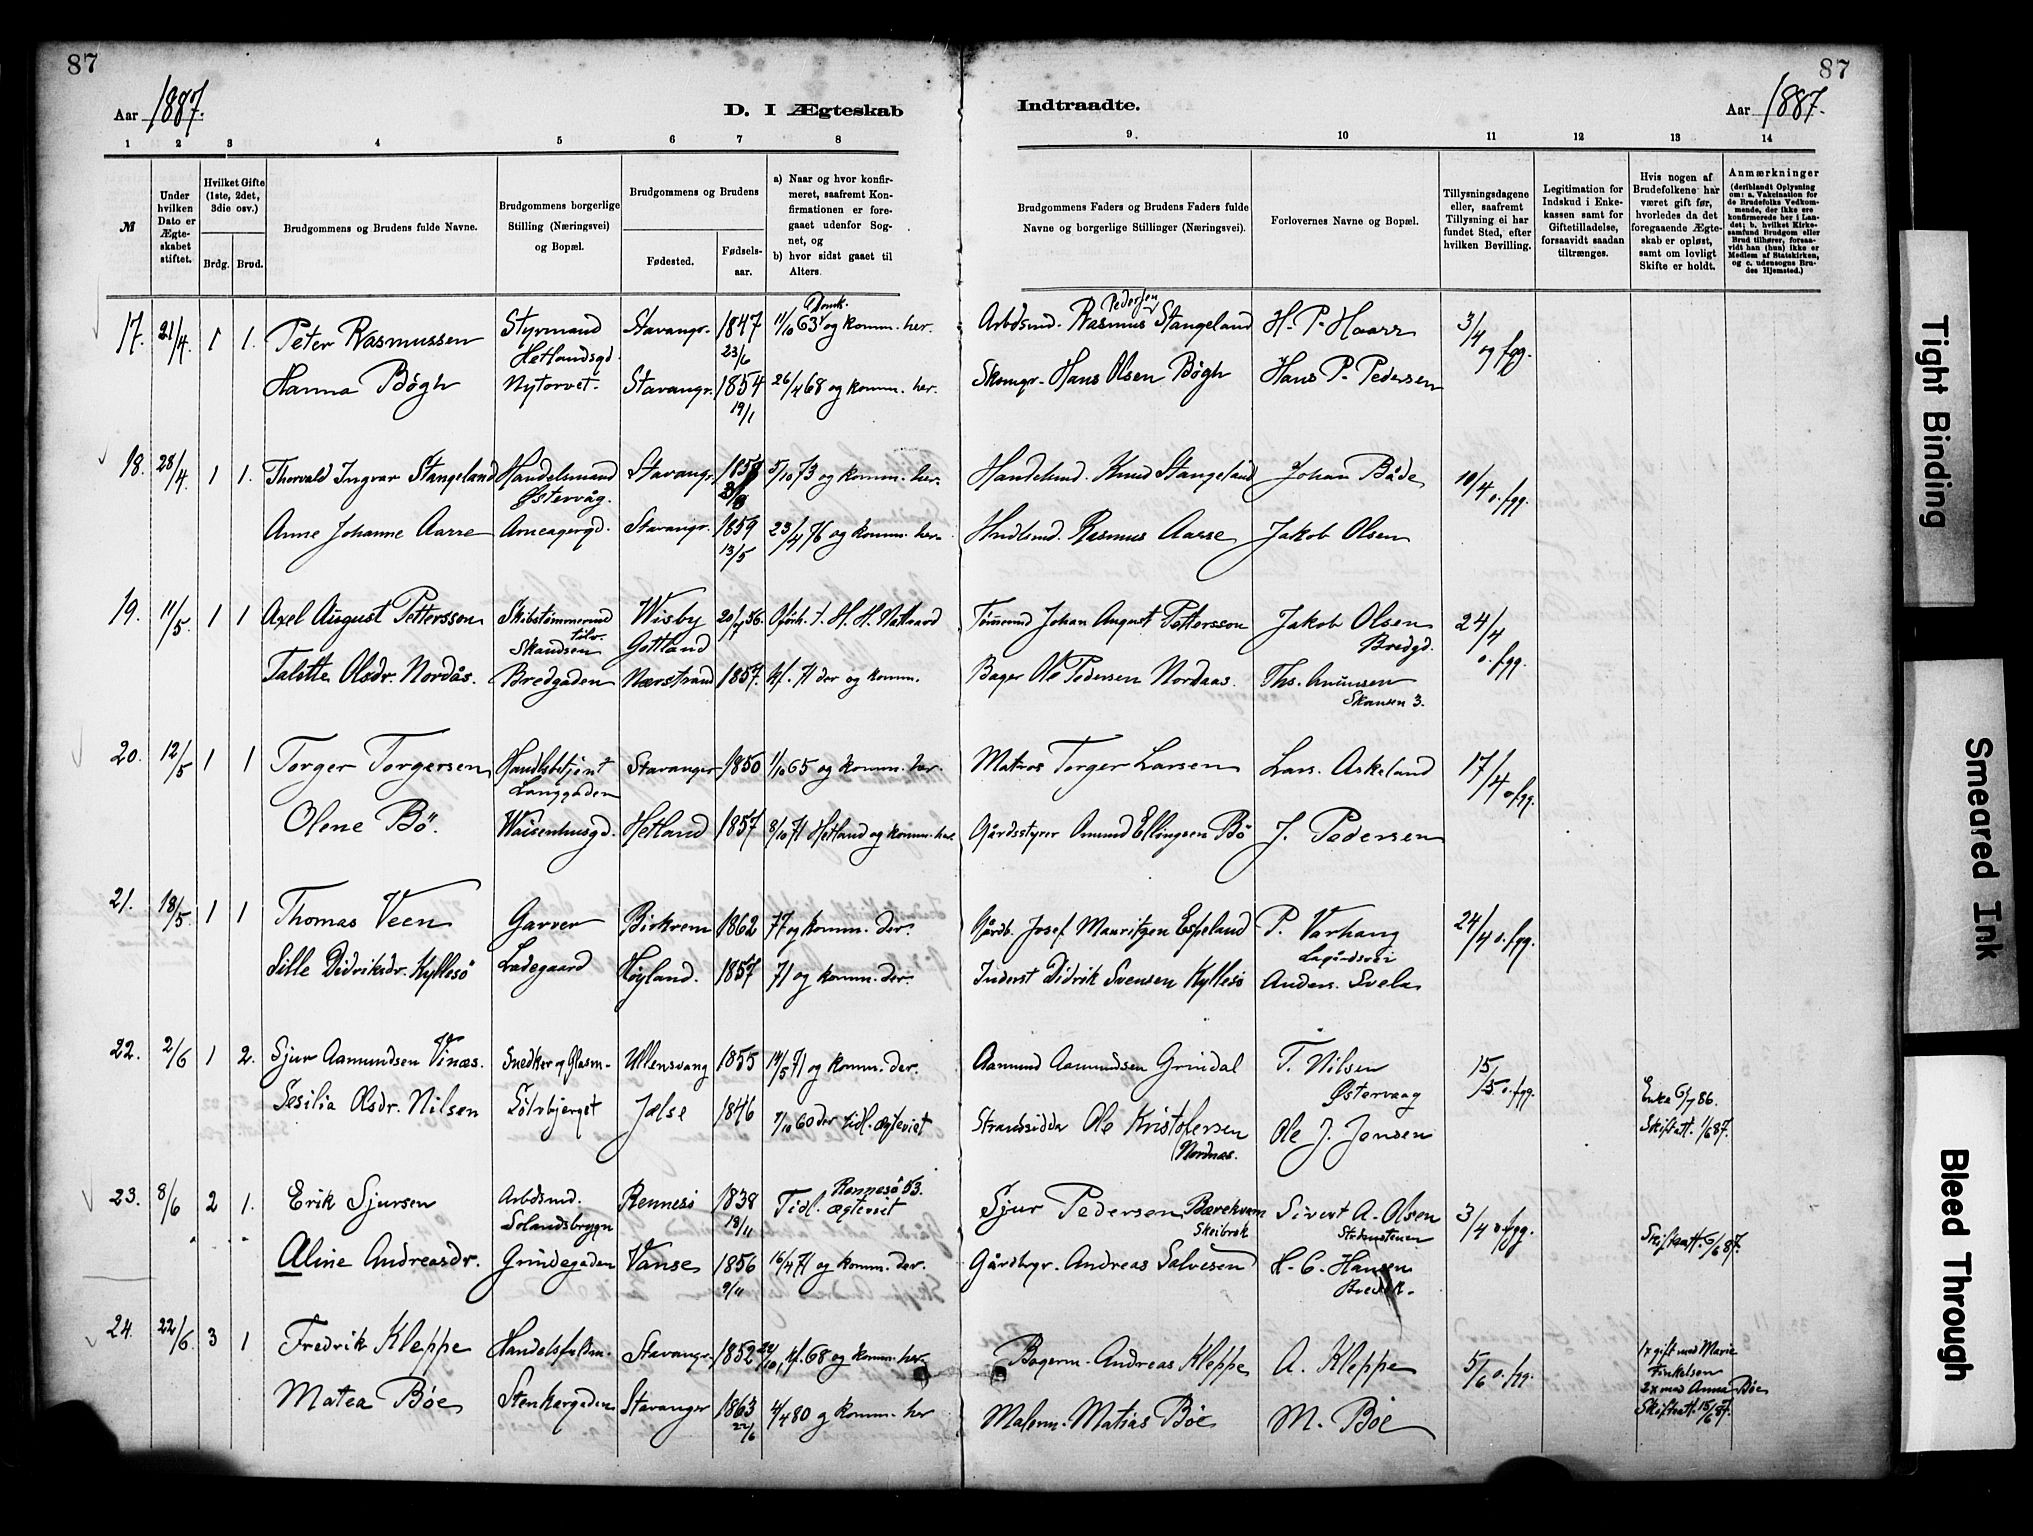 87
87
Aar 1887.
D. I Ægteskab
Indtraadte.
Aar 1887.
1 2 3 4 5 6 7 8 9. 10 11 12 13 14
№
Under hvilken Dato er Ægteskabet stiftet.
Hvilket Gifte (1ste, 2det, 3die osv.)
Brdg. Brud.
Brudgommens og Brudens fulde Navne.
Brudgommens borgerlige Stilling (Næringsvei) og Bopæl.
Brudgommens og Brudens
Fødested.
Fødselsaar.
a) Naar og hvor konfirmeret, saafremt Konfirmationen er foregaaet udenfor Sognet, og
b) hvor sidst gaaet til Alters.
Brudgommens Faders og Brudens Faders fulde Navne og borgerlige Stillinger (Næringsvei).
Forlovernes Navne og Bopæl.
Tillysningsdagene eller, saafremt Tillysning ei har fundet Sted, efter hvilken Bevilling.
Legitimation for Indskud i Enkekassen samt for Giftetilladelse, forsaavidt saadan tiltrænges.
Hvis nogen af Brudefolkene har været gift før, hvorledes da det foregaaende Ægteskab er opløst, samt om lovligt Skifte er holdt.
Anmærkninger
(deriblandt Oplysning om: a. Vakcination for de Brudefolks Vedkommende, der ikke ere konfirmerede her i Landet; b. hvilket Kirkesamfund Brudgom eller Brud tilhører, forsaavidt han (hun) ikke er Medlem af Statskirken, og c. udensogns Brudes Hjemsted.)
17. 21/4. 1 1. Peter Rasmussen Styrmand Hetlandsgd. Stavangr. 1847 23/6 11/10 63 Domk. og komm. her. Arbdsmd. Rasmus Pedersen Stangeland H. P. Haarr 3/4 og fgg.
Hanna Bögh Nytorvet. Stavangr. 1854 19/1 26/4 68 og komm. her. Skomgr. Hans Olsen Bögh Hans P. Pedersen
18. 28/4. 1 1. Thorvald Ingvar Stangeland Handelsmand Østervåg. Stavangr. 1858 5/10 73 og komm. her. Handelsmd. Knud Stangeland Johan Både 10/4 o. fgg.
Anne Johanne Aarre Arneagergd. Stavangr. 1859 13/5 23/4 76 og komm. her. Hndlsmd. Rasmus Aarre Jakob Olsen
19. 11/5. 1 1 Axel August Pettersson Skibstömmermd Skandsen Wisby Gottland 20/7 56. H. H. Tömmrmd Johan August Pettersson Jakob Olsen Bredgd. 24/4 o. fgg.
Talette Olsdr. Nordås. Bredgaden Nærstrand 1857. kf. 71 der og komm. Bager Ole Pedersen Nordaas. Ths. Skansen 3.
20. 12/5 1 1 Torger Torgersen Handlsbetjent Langgaden Stavanger 1850 1/10 65 og komm. her. Matros Torger Larsen Lars. Askeland 17/4 o fgg.
Olene Bö. Waisenhusgd. Hetland 1857 8/10 71 Hetland og komm. her Gårdsstyrer Amund Ellingsen Bö J. Pedersen
21. 18/5. 1 1 Thomas Veen Garver Birkrem 1862 77 og komm. der. Gårdb. Josef Mauritzen Espeland P. Varhaug Lagårdsvei 24/4 o. fgg.
Sille Didriksdr. Kyllesö Ladegaard Höyland. 1857 71 og komm. der. Inderst Didrik Svensen Kyllesö Anders. Svela
22. 2/6 1 2. Sjur Aamundsen Vinæs. Snedker og Glasm. Ullensvang 1855 14/5 71 og komm. der. Aamund Aamundsen Grindal T. Nilsen Østervaag 15/5 o. fgg.
Sesilia Olsdr. Nilsen Sölvbjerget Jelse 1846 7/10 60 der tidl. ægteviet Strandsidder Ole Kristofersen Nordnas. Ole J. Jensen Enke 6/7 86. Skifteatt. 1/6 87.
23. 8/6 2 1. Erik Sjursen Arbdsmd. Solandsbrygn Rennesö 1838 18/11 Tidl. Rennesö 53. ægteviet Sjur Pedersen Bærekvam Skeibrok Sivert A. Olsen 3/4 o fgg. Skifteatt. 6/6 87.
Aline Andreasdr. Grindegaden Vanse 1856 9/11 16/4 71 og komm. der. Gårdbgr. Andreas Salvesen H. C. Hansen
24. 22/6 3 1 Fredrik Kleppe Handelsfuldm. Stavangr. 1852 kf. 68 og komm. her. Bagerm. Andreas Kleppe A. Kleppe 5/6 o. fgg. 1x gift med Marie Finkelsen 2x med Anna Böe Skifteatt. 15/6 87.
Matea Böe Stenkargaden Stavanger 1863 22/6 4/4 80 og komm. her Malerm. Matias Böe M. Böe
Tight Binding
Smeared Ink
Bleed Through